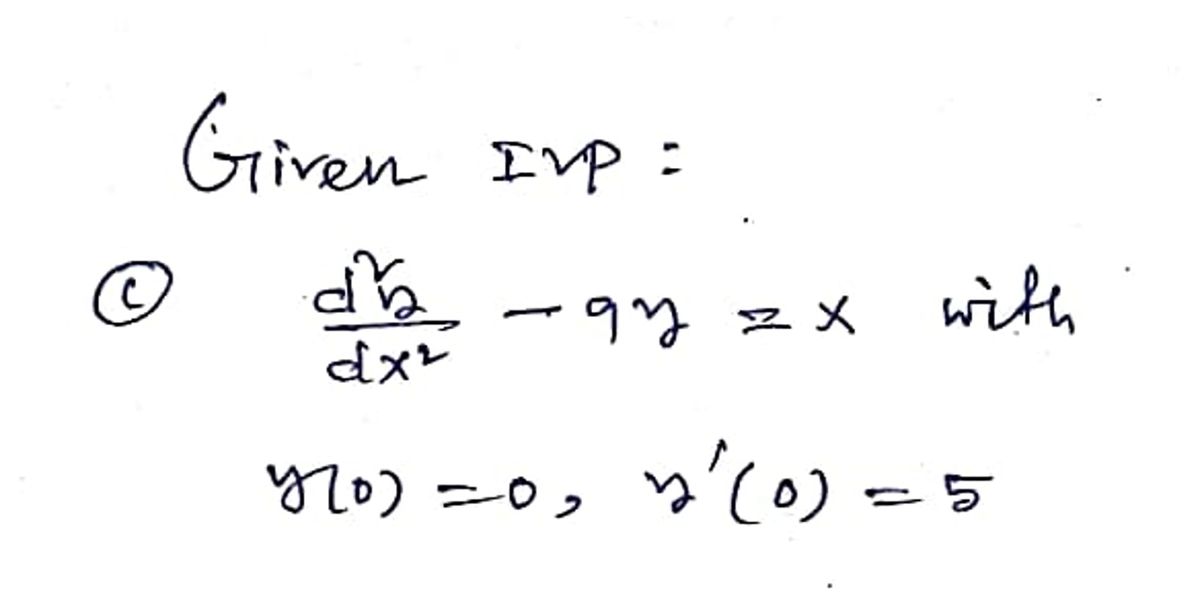 Given IVP :
(c) d²y/dx² - 9y = x with
y(0) = 0, y'(0) = 5